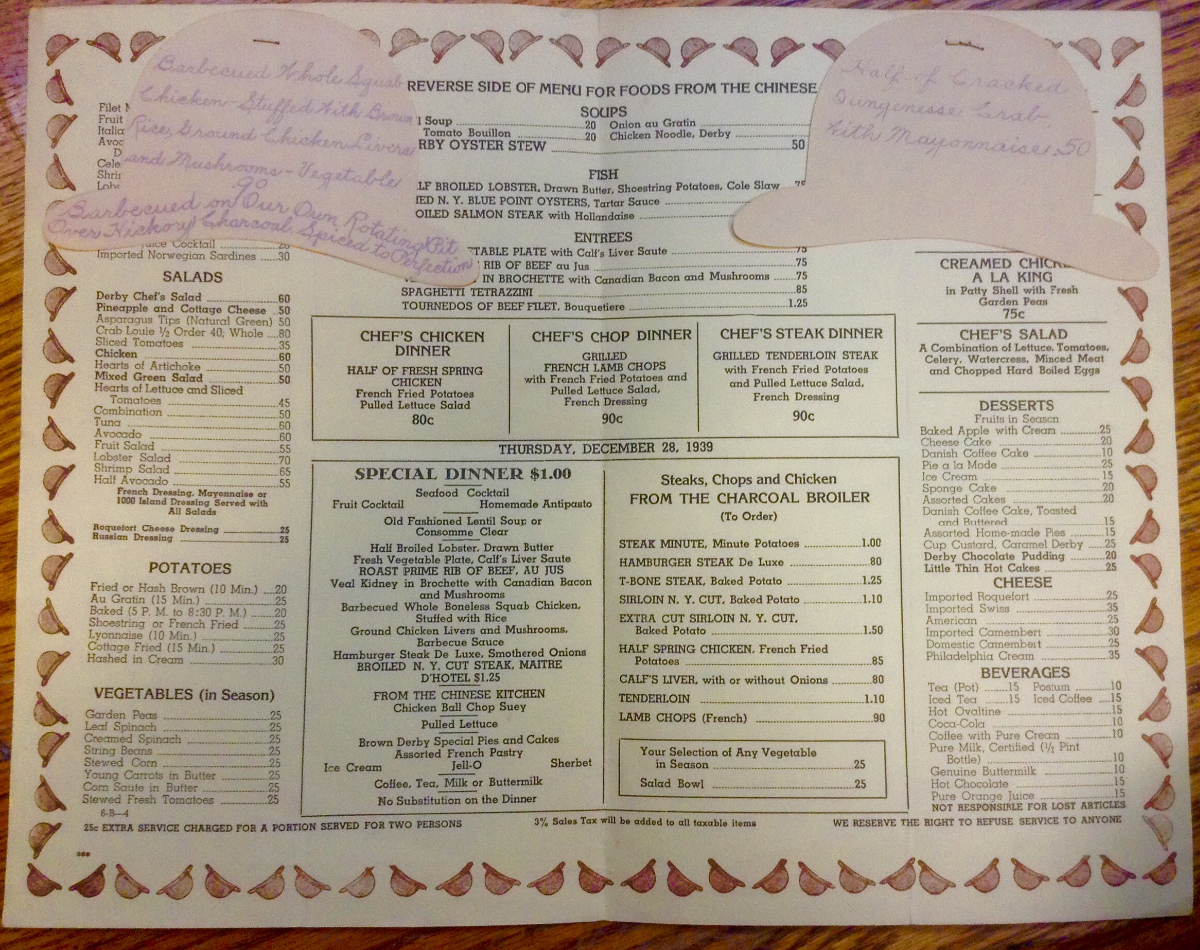 Barbecued Whole Squab
Chicken - Stuffed With Brown
Rice, Ground Chicken Livers
and Mushrooms - Vegetable
.90
Barbecued on Our Own Rotating Pit
Over Hickory Charcoal Spiced to Perfection
Half of Cracked
Dungenesse Crab
With Mayonnaise .50
REVERSE SIDE OF MENU FOR FOODS FROM THE CHINESE
Filet
Fruit
Italia
Avoc
D
Cele
Shri
Lobs
Juice Cocktail 20
Imported Norwegian Sardines .30
SALADS
Derby Chef's Salad 60
Pineapple and Cottage Cheese .50
Asparagus Tips (Natural Green) 50
Crab Louie ½ Order 40; Whole ....80
Sliced Tomatoes 35
Chicken 60
Hearts of Artichoke 50
Mixed Green Salad 50
Hearts of Lettuce and Sliced
Tomatoes 45
Combination 50
Tuna 60
Avocado 60
Fruit Salad 55
Lobster Salad 70
Shrimp Salad 65
Half Avocado 55
French Dressing, Mayonnaise or
1000 Island Dressing Served with
All Salads
Roquefort Cheese Dressing 25
Russian Dressing 25
POTATOES
Fried or Hash Brown (10 Min.) ....20
Au Gratin (15 Min.) 25
Baked (5 P. M. to 8:30 P. M.) 20
Shoestring or French Fried 25
Lyonnaise (10 Min.) 25
Cottage Fried (15 Min.) 25
Hashed in Cream 30
VEGETABLES (in Season)
Garden Peas 25
Leaf Spinach 25
Creamed Spinach 25
String Beans 25
Stewed Corn 25
Young Carrots in Butter 25
Corn Saute in Butter 25
Stewed Fresh Tomatoes 25
6-8—4
SOUPS
l Soup 20 Onion au Gratin
Tomato Bouillon 20 Chicken Noodle, Derby
RBY OYSTER STEW 50
FISH
LF BROILED LOBSTER, Drawn Butter, Shoestring Potatoes, Cole Slaw 75
IED N. Y. BLUE POINT OYSTERS, Tartar Sauce
OILED SALMON STEAK with Hollandaise
ENTREES
ETABLE PLATE with Calf's Liver Saute 75
RIB OF BEEF au Jus 75
IN BROCHETTE with Canadian Bacon and Mushrooms .75
SPAGHETTI TETRAZZINI .85
TOURNEDOS OF BEEF FILET, Bouquetiere 1.25
CHEF'S CHICKEN
DINNER
HALF OF FRESH SPRING
CHICKEN
French Fried Potatoes
Pulled Lettuce Salad
80c
CHEF'S CHOP DINNER
GRILLED
FRENCH LAMB CHOPS
with French Fried Potatoes and
Pulled Lettuce Salad,
French Dressing
90c
CHEF'S STEAK DINNER
GRILLED TENDERLOIN STEAK
with French Fried Potatoes
and Pulled Lettuce Salad,
French Dressing
90c
THURSDAY, DECEMBER 28, 1939
SPECIAL DINNER $1.00
Seafood Cocktail
Fruit Cocktail Homemade Antipasto
Old Fashioned Lentil Soup or
Consomme Clear
Half Broiled Lobster, Drawn Butter
Fresh Vegetable Plate, Calf's Liver Saute
ROAST PRIME RIB OF BEEF, AU JUS
Veal Kidney in Brochette with Canadian Bacon
and Mushrooms
Barbecued Whole Boneless Squab Chicken,
Stuffed with Rice
Ground Chicken Livers and Mushrooms,
Barbecue Sauce
Hamburger Steak De Luxe, Smothered Onions
BROILED N. Y. CUT STEAK, MAITRE
D'HOTEL $1.25
FROM THE CHINESE KITCHEN
Chicken Ball Chop Suey
Pulled Lettuce
Brown Derby Special Pies and Cakes
Assorted French Pastry
Ice Cream Jell-O Sherbet
Coffee, Tea, Milk or Buttermilk
No Substitution on the Dinner
Steaks, Chops and Chicken
FROM THE CHARCOAL BROILER
(To Order)
STEAK MINUTE, Minute Potatoes 1.00
HAMBURGER STEAK De Luxe .80
T-BONE STEAK, Baked Potato 1.25
SIRLOIN N. Y. CUT, Baked Potato 1.10
EXTRA CUT SIRLOIN N. Y. CUT,
Baked Potato 1.50
HALF SPRING CHICKEN, French Fried
Potatoes 85
CALF'S LIVER, with or without Onions .80
TENDERLOIN 1.10
LAMB CHOPS (French) .90
Your Selection of Any Vegetable
in Season 25
Salad Bowl 25
CREAMED CHICKE
A LA KING
in Patty Shell with Fresh
Garden Peas
75c
CHEF'S SALAD
A Combination of Lettuce, Tomatoes,
Celery, Watercress, Minced Meat
and Chopped Hard Boiled Eggs
DESSERTS
Fruits in Season
Baked Apple with Cream 25
Cheese Cake 20
Danish Coffee Cake 10
Pie a la Mode 25
Ice Cream 15
Sponge Cake 20
Assorted Cakes 20
Danish Coffee Cake, Toasted
and Buttered 15
Assorted Home-made Pies 15
Cup Custard, Caramel Derby 25
Derby Chocolate Pudding 20
Little Thin Hot Cakes 25
CHEESE
Imported Roquefort 25
Imported Swiss 35
American 25
Imported Camembert 30
Domestic Camembert 25
Philadelphia Cream 35
BEVERAGES
Tea (Pot) 15 Postum 10
Iced Tea 15 Iced Coffee 15
Hot Ovaltine 15
Coca-Cola 10
Coffee with Pure Cream 10
Pure Milk, Certified (½ Pint
Bottle) 10
Genuine Buttermilk 10
Hot Chocolate 15
Pure Orange Juice 15
NOT RESPONSIBLE FOR LOST ARTICLES
25c EXTRA SERVICE CHARGED FOR A PORTION SERVED FOR TWO PERSONS
3% Sales Tax will be added to all taxable items
WE RESERVE THE RIGHT TO REFUSE SERVICE TO ANYONE